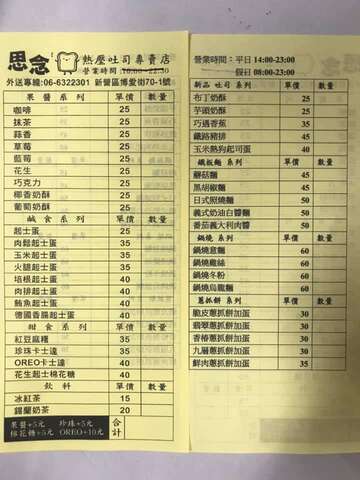 思念 熱壓吐司專賣店
營業時間：10:00~22:30
外送專線:06-6322301 新營區博愛街70-1號
果醬系列 單價 數量
咖啡 25
抹茶 25
蒜香 25
草莓 25
藍莓 25
花生 25
巧克力 25
椰香奶酥 25
葡萄奶酥 25
鹹食系列 單價 數量
起士蛋 25
肉鬆起士蛋 35
玉米起士蛋 35
火腿起士蛋 35
培根起士蛋 40
肉排起士蛋 40
鮪魚起士蛋 40
德國香腸起士蛋 40
甜食系列 單價 數量
紅豆麻糬 35
珍珠卡士達 35
OREO卡士達 40
花生起士棉花糖 40
飲料 單價 數量
冰紅茶 15
錫蘭奶茶 20
果醬+5元 珍珠+5元
棉花糖+5元 OREO+10元
合計
營業時間：平日 14:00-23:00
假日 08:00-23:00
新品 吐司 單價 數量
布丁奶酥 25
芋頭奶酥 25
巧遇香蕉 35
鐵路豬排 45
玉米熱狗起司蛋 40
鐵板麵系列 單價 數量
蘑菇麵 45
黑胡椒麵 45
日式照燒麵 50
義式奶油白醬麵 50
番茄義大利肉醬 50
鍋燒系列 單價 數量
鍋燒意麵 60
鍋燒雞絲 60
鍋燒冬粉 60
鍋燒烏龍麵 60
蔥抓餅系列 單價 數量
脆皮蔥抓餅加蛋 30
翡翠蔥抓餅加蛋 30
香椿蔥抓餅加蛋 30
九層蔥抓餅加蛋 30
鮮肉蔥抓餅加蛋 35